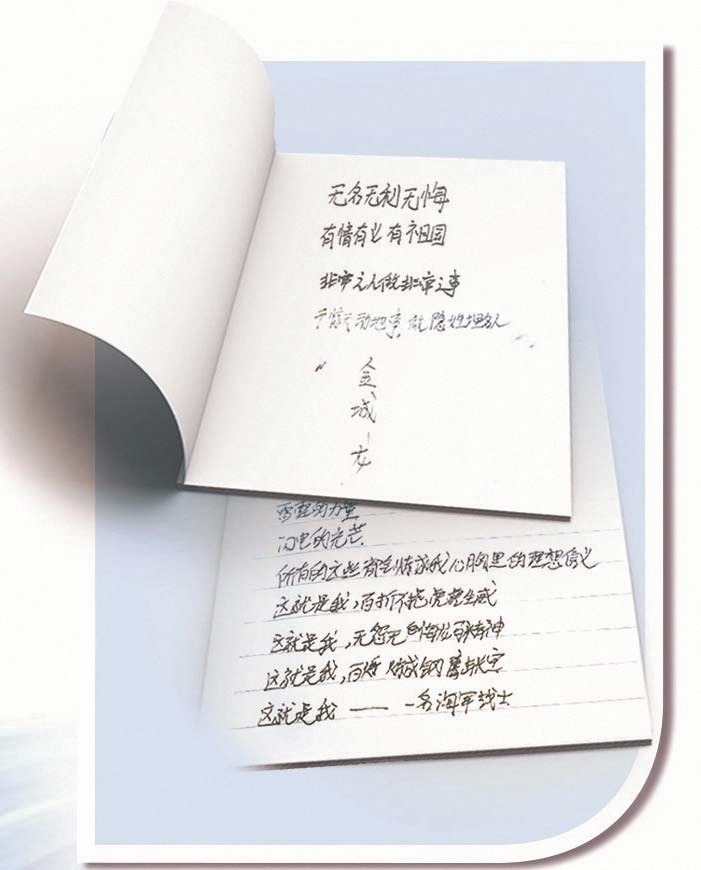 无名无利无悔
有情有义有祖国
非常之人做非常之事
干惊天动地事 做隐姓埋名人
雷霆的力量
闪电的光芒
所有的这些都会铸就我心胸里的理想信义
这就是我,百折不挠虎虎生威
这就是我,无怨无悔
这就是我,百炼成钢
这就是我 —— 一名海军战士